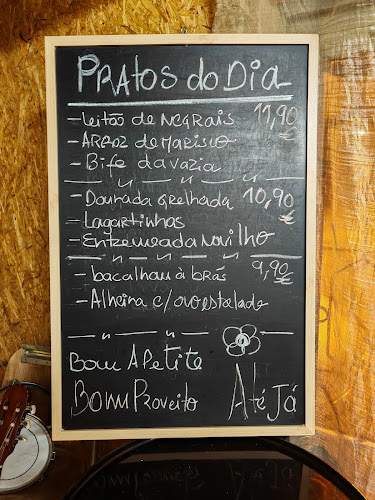 PRATOS do DIA
- Leitão de NEGRAIS 11,90 €
- ARROZ de MARISCO
- Bife davazia
- Dourada grelhada 10,90 €
- Lagartinhos
- Entremeada Novilho
- bacalhau à brás 9,90 €
- Alheira c/ ovo estalado
Bom APetite
BOM PROVEITO Até Já